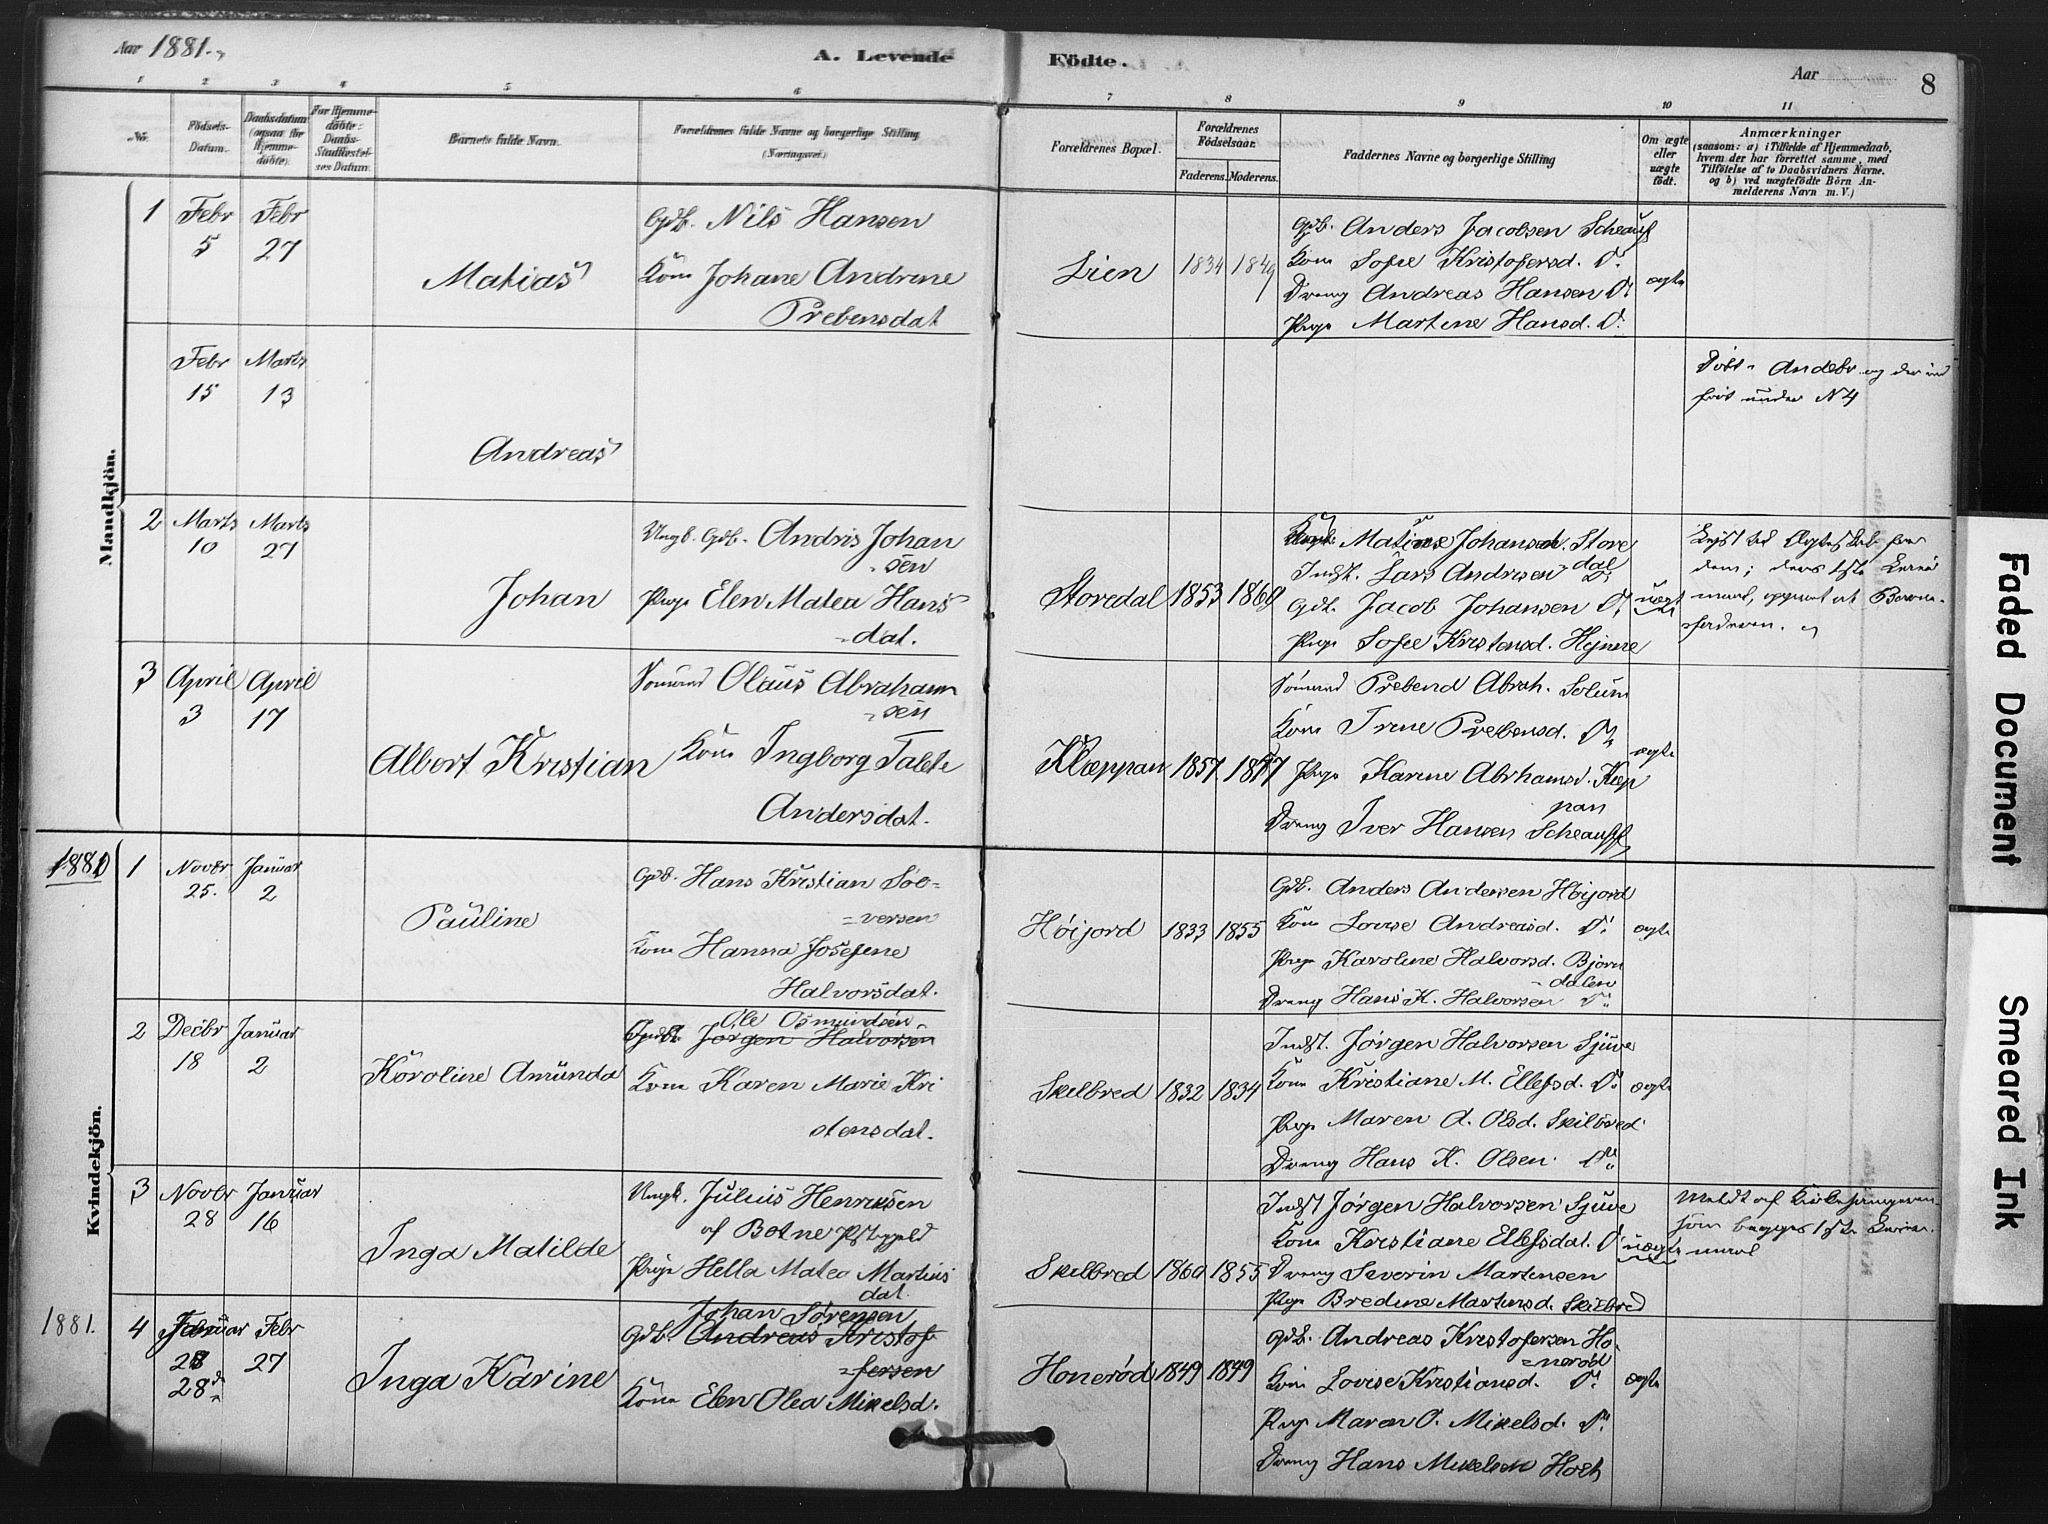 Aar 1881.
A. Levende
Födte.
Aar
8
1 2 3 4 5 6 7 8 9 10 11
No.
Födsels-
Datum.
Daabsdatum
(ogsaa for
Hjemme-
døbte).
For Hjemme-
døbte:
Daabs-
Stadfæstel-
ses Datum.
Barnets fulde Navn.
Forældrenes fulde Navne og borgerlige Stilling
(Næringsvei).
Forældrenes Bopæl.
Forældrenes
Födselsaar.
Faderens. Moderens.
Faddernes Navne og borgerlige Stilling
Om ægte
eller
uægte
födt.
Anmærkninger
(saasom: a) i Tilfælde af Hjemmedaab,
hvem der har forrettet samme, med
Tilföielse af to Daabsvidners Navne.
og b) ved uægtefödte Börn An-
melderens Navn m. V.)
Mandkjön.
1
Febr
5
Febr
27
Matias
Gdb. Nils Hansen
Kone Johane Andrine
Prebensdat
Lien
1834 1849
Gdb. Anders Jacobsen Scheauf
Kone Sofie Kristofersd. Do
Dreng Andreas Hansen Do
Pige Martine Hansd. Do
ægte
Febr
15
Marts
13
Andreas
Döbt i Andebr og der ind
fört under N 4
2
Marts
10
Marts
27
Johan
Ungk. Gdb. Andris Johan
sen
Pige Elen Matea Hans
dat.
Storedal
1853 1860
Matine Johansd. Store
dal
Indst. Lars Andresen Do
Gdb. Jacob Johansen Do
Pige Sofie Kristensd. Hejnne
uægt
3
April
3
April
17
Albert Kristian
Sömand Olaus Abraham
sen
Kone Ingborg Talete
Andersdat.
Klæppan
1857 1857
Sömand Prebend Abrah. Solum
Kone Trine Prebensd. Do
Pige Karine Abrhamsd. Klep
pan
Dreng Iver Hansen Scheauf
ægte
Kvindekjön.
1880
1
Novbr
25.
Januar
2
Pauline
Gdb. Hans Kristian Sö
versen
Kone Hanna Josefine
Halvorsdat.
Höijord
1833 1855
Gdb. Anders Andersen Höijord
Kone Lovise Andreasd. Do
Pige Karoline Halvorsd. Bjorn
dalen
Dreng Hans K. Halvorsen Do
ægte
2
Decbr
18
Januar
2
Karoline Amunda
Ole Osmundsen
Jörgen Halvorsen
Kone Karen Marie Kri
stensdat.
Skelbred
1832 1834
Indst. Jörgen Halvorsen Sjuve
Kone Kristiane M. Ellefsd. Do
Pige Maren A. Olsd. Skilbred
Dreng Hans K. Olsen Do
ægte
3
Novbr
28
Januar
16
Inga Matilde
Ungk. Julius Henriksen
af Botne Pstgjeld
Pige Hella Matea Martins
dat.
Skelbred
1860 1855
Indst Jörgen Halvorsen Sjuve
Kone Kristiane Ellefsdat. Do
Dreng Severin Martinsen
Pige Bredine Martinsd. Skilbred
uægte
Meldt af Kirkesangeren
som begges 1ste Leier
maal
1881.
4
Januar
28
28de
Febr
27
Inga Karine
Johan Sörensen
Gdb. Andreas Kristof
fersen
Kone Elen Olea Mikelsd.
Honeröd
1849 1849
Gdb. Andreas Kristofersen Ho
neröd
Kone Lovise Kristiansd. Do
Pige Maren O. Mikelsd. Do
Dreng Hans Mikelsen Holt
ægte
Faded Document
Smeared Ink